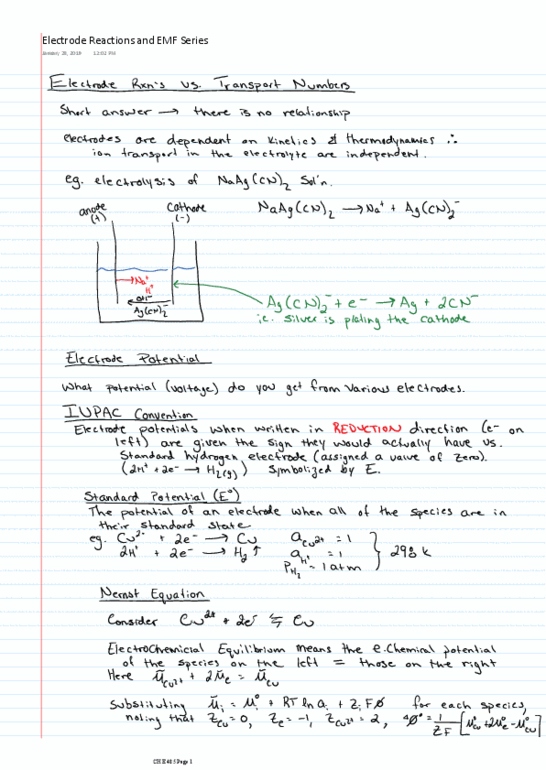 Electrode Reactions and EMF Series
January 28, 2019 12:02 PM
Electrode Rxn's vs. Transport Numbers
Short answer → there is no relationship
electrodes are dependent on kinetics & thermodynamics ∴
ion transport in the electrolyte are independent.
eg. electrolysis of NaAg(CN)₂ Sol'n.
anode (+)
Cathode (-)
NaAg(CN)₂ → Na⁺ + Ag(CN)₂⁻
Na⁺
H⁺
OH⁻
Ag(CN)₂⁻
Ag(CN)₂⁻ + e⁻ → Ag + 2CN⁻
i.e. silver is plating the cathode
Electrode Potential
What potential (voltage) do you get from various electrodes.
IUPAC Convention
Electrode potentials when written in REDUCTION direction (e⁻ on
left) are given the sign they would actually have vs.
Standard hydrogen electrode (assigned a value of zero).
(2H⁺ + 2e⁻ → H₂(g)) Symbolized by E.
Standard Potential (E°)
The potential of an electrode when all of the species are in
their standard state
eg. Cu²⁺ + 2e⁻ → Cu a_Cu²⁺ = 1
2H⁺ + 2e⁻ → H₂↑ a_H⁺ = 1 } 298 k
P_H₂ = 1 atm
Nernst Equation
Consider Cu²⁺ + 2e⁻ ⇆ Cu
ElectroChemicial Equilibrium means the e.Chemical potential
of the species on the left = those on the right
Here μ̃_Cu²⁺ + 2μ̃_e = μ̃_Cu
Substituting μ̃ᵢ = μᵢ° + RT ln aᵢ + zᵢFϕ for each species,
noting that Z_Cu = 0, Z_e = -1, Z_Cu²⁺ = 2, Δϕ° = 1/ZF [μ°_Cu + 2μ°_e - μ°_Cu]
CHE 485 Page 1